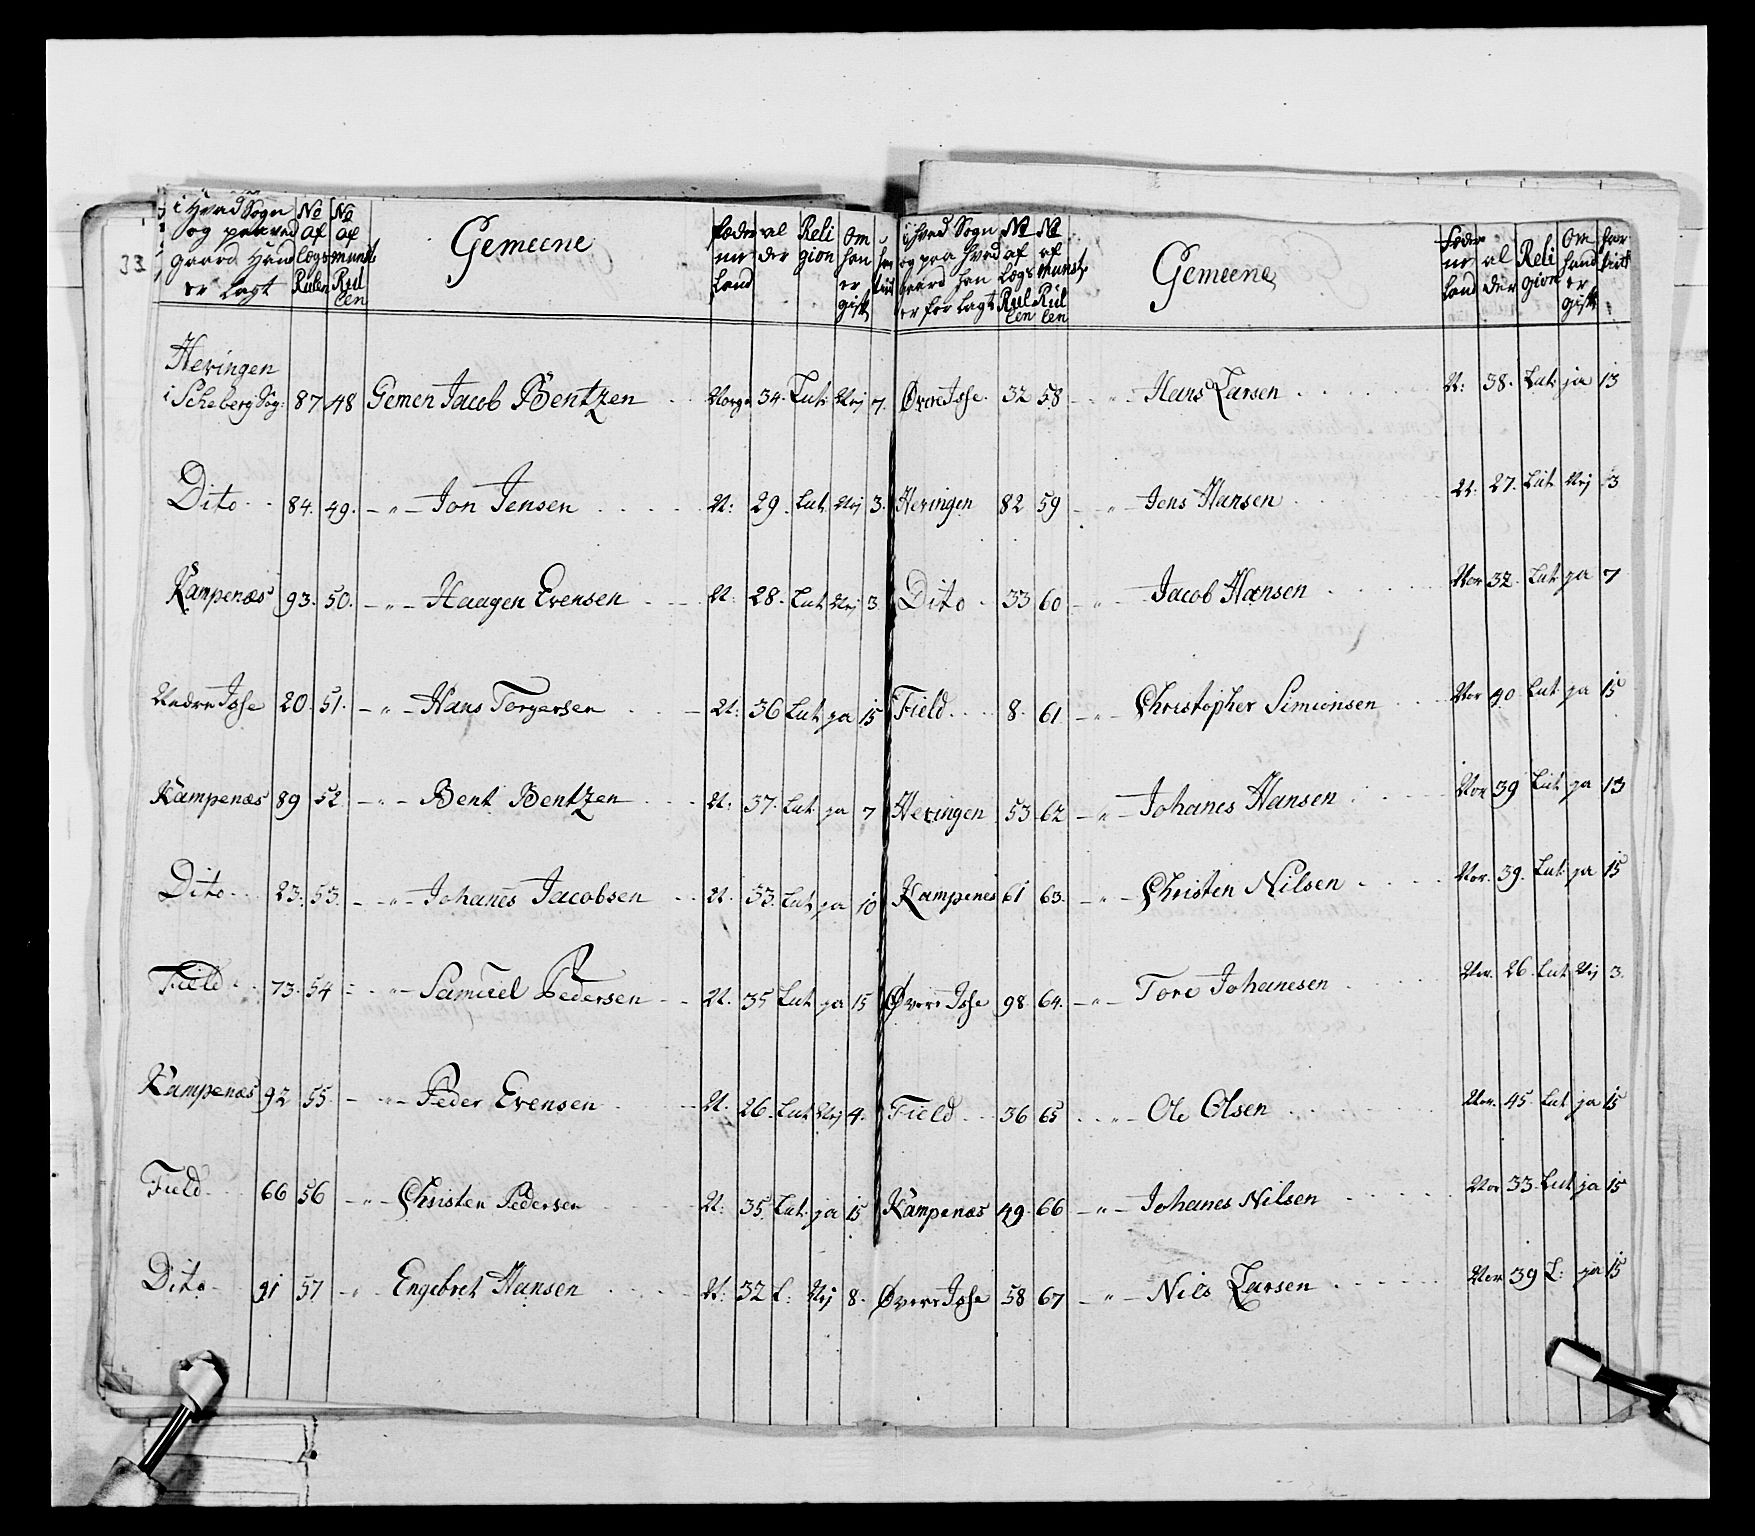 33
i Hvad Sogn No No
og paa vad af af Gemeene
gaard Hand lægs munst
er Lagt Rulen Rul
len
fødene al Reli om
ne der gion han
Land er
gift
Heringen
i Scheberg Sog: 87 48 Gemen Jacob Bentzen Norge 34. Lut: Nej 7.
Dito 84. 49. - " - Jon Jensen N: 29. Lut Nej 3.
Kampenæs 93. 50. - " - Haagen Evensen N: 28. Lut Nej 3
Nedre Isse 20. 51. - " - Hans Torgersen N: 36 Lut ja 15
Kampenæs 89 52 - " - Bent Bentzen N: 37. Lut ja 7
Dito 23. 53. - " - Johanes Jacobsen N. 33. Lut ja 10
Field 73. 54 - " - Samuel Pedersen N. 35 Lut ja 15
Kampenæs 92 55. - " - Peder Evensen N. 26. Lut Nej 4.
Field 66 56 - " - Christen Pedersen N: 35. Lut: ja 15
Dito 91 57 - " - Engebret Hansen N: 32 L: Nej 8.
i hvad Sogn No No
og paa hvad af af Gemeene
gaard han Lægs munst
er for lagt Rul Rul
len len
føde
ne al Reli Om
Land der gion hand
er
gift
Øvre Isse 32 58 - " - Hans Larsen N: 38. Lut: ja 13
Heringen 82 59 - " - Jens Hansen N: 27. Lut Nej 3
Dito 33 60 - " - Jacob Hansen Nor 32. Lut ja 7
Field 8. 61 - " - Christopher Simionsen Nor 40 Lut ja 15
Heringen 53 62 - " - Johanes Hansen Nor 39 Lut ja 13
Kampenes 61 63. - " - Christen Nilsen Nor. 39. Lut ja 15
Øvere Isse 98 64. - " - Tore Johanesen Nor. 26. Lut Nej 3.
Field 36 65 - " - Ole Olsen Nor. 45. Lut ja 15
Kampenæs 49. 66 - " - Johanes Nilsen Nor 33. Lut ja 15
Øvere Isse 58 67 - " - Nils Larsen Nor 39 L: ja 15